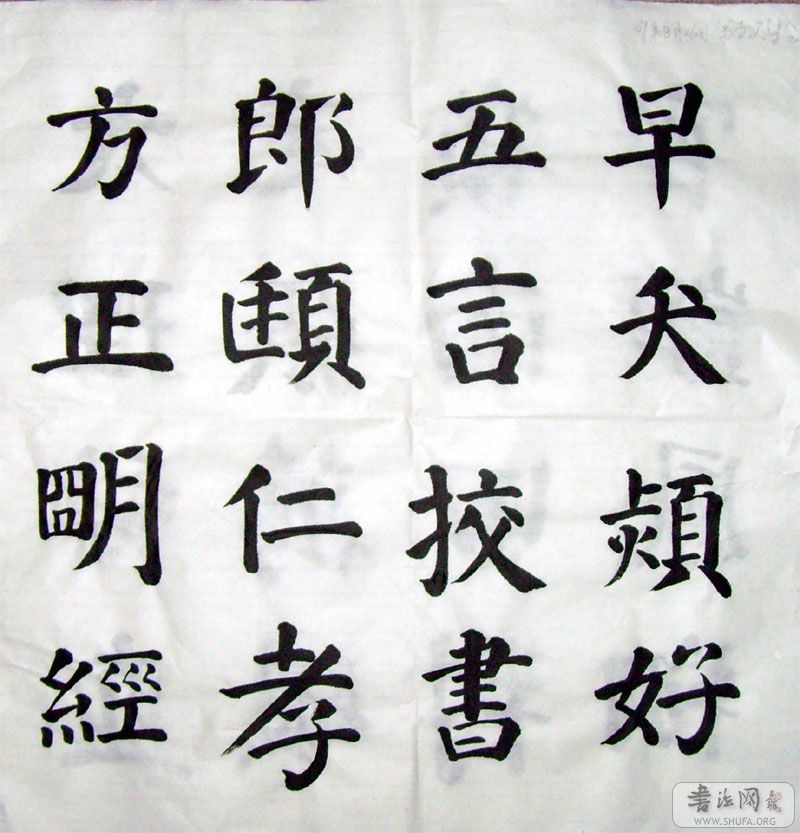 早夭熲好
五言挍書
郎頤仁孝
方正明經
書法网
WWW.SHUFA.ORG